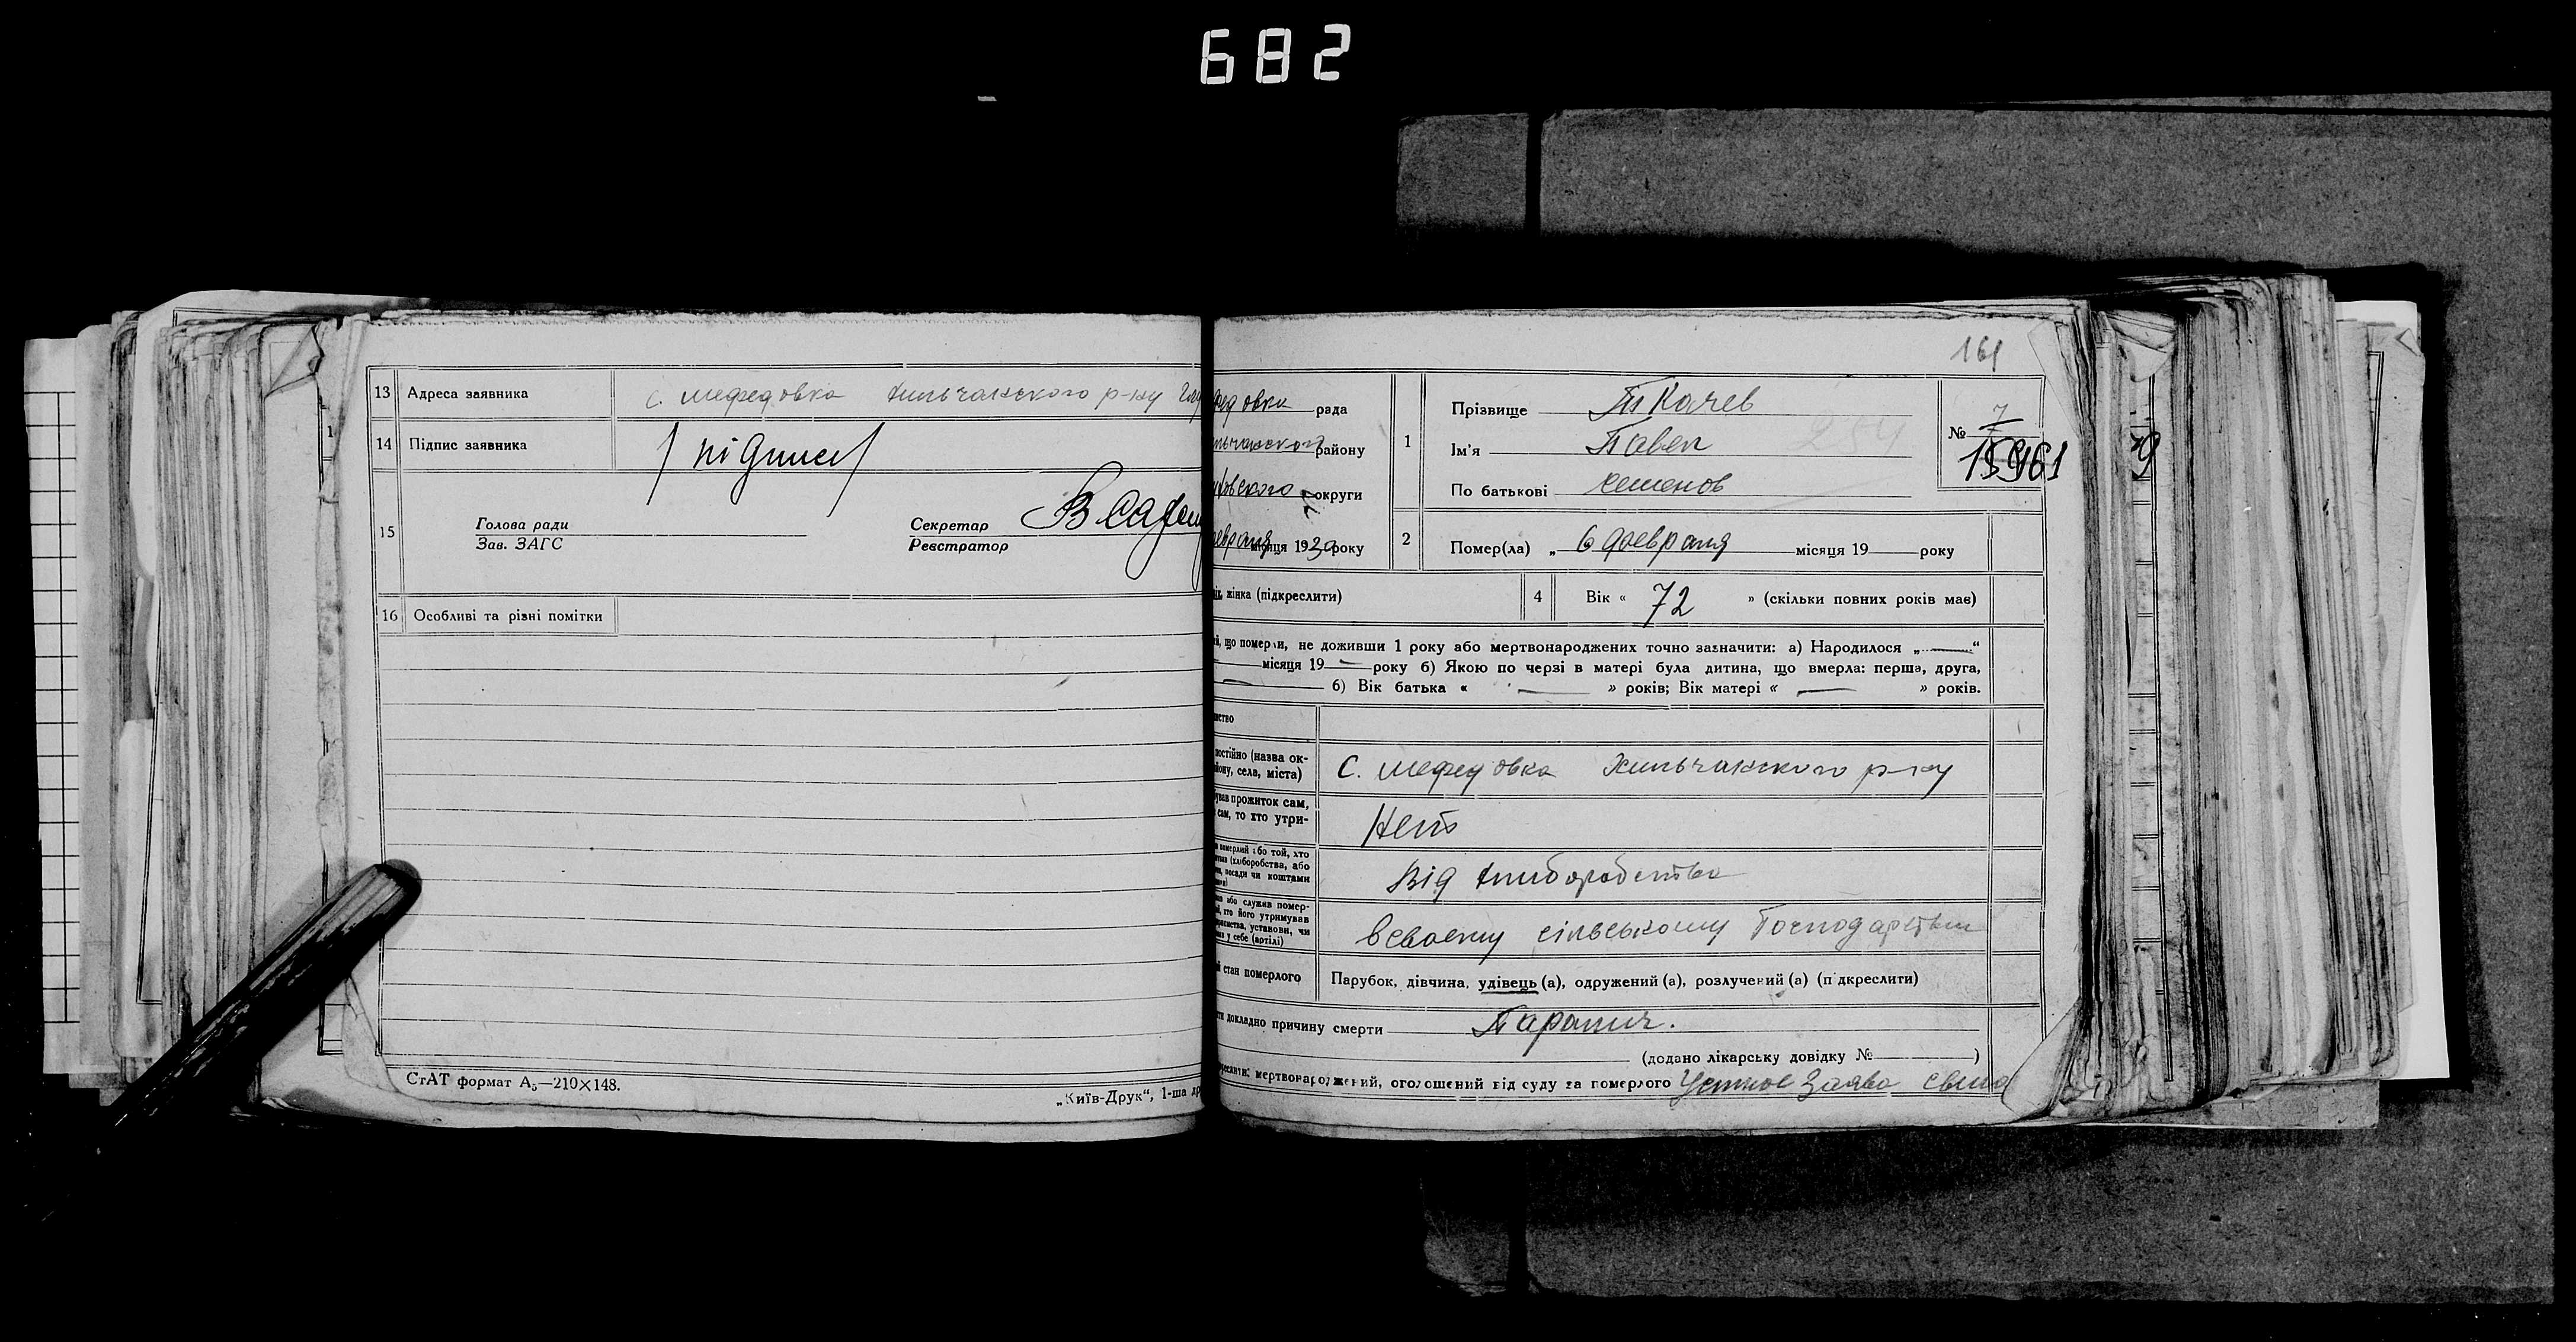 682
13 Адреса заявника с. Мефедовка Хильчанского р-ну Глу
14 Підпис заявника / підписи /
15 Голова ради
Зав. ЗАГС
Секретар
Реєстратор
16 Особливі та різні помітки
СтАТ формат А₅—210×148.
„Київ-Друк“, 1-ша др
161
федовка рада
льчанского району
уховского округи
евраля місяця 1930 року
1 Прізвище Ткачев
Ім'я Павел 254
По батькові Семенов
№ 7
15961
2 Помер(ла) „ 6 февраля місяця 19 року
жінка (підкреслити)
4 Вік « 72 » (скільки повних років має)
що померли, не доживши 1 року або мертвонароджених точно зазначити: а) Народилося „ — “
— місяця 19 — року б) Якою по черзі в матері була дитина, що вмерла: перша, друга,
— б) Вік батька « — » років; Вік матері « — » років.
постійно (назва ок-
йону, села, міста) С. Мефедовка Хильчанского р-ну
прожиток сам,
сам, то хто утри- Нет
померлий або той, хто
(хліборобства, або
посади чи коштами Від хлиборобства
або служив помер-
хто його утримував
установи, чи
у себе (артілі) в своему сільському Господарстви
стан померлого Парубок, дівчина, удівець (а), одружений (а), розлучений (а) (підкреслити)
докладно причину смерти Паралич.
(додано лікарську довідку № )
мертвонароджений, оголошений від суду за померлого Устное Заява